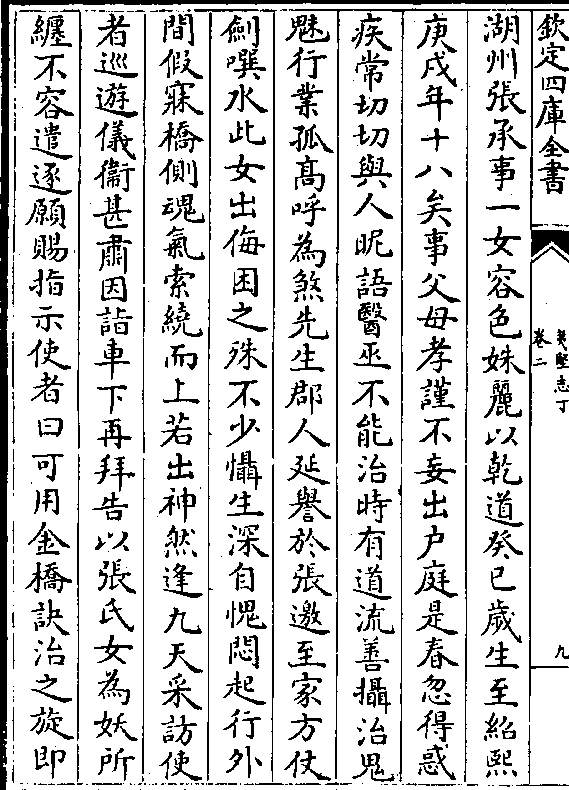 欽定四庫全書
夷堅志丁
卷二
九
湖州張承事一女容色姝麗以乾道癸巳歲生至紹熙
庚戌年十八矣事父母孝謹不妄出户庭是春忽得惑
疾常切切與人昵語醫巫不能治時有道流善攝治鬼
魅行業孤高呼為煞先生郡人延譽於張邀至家方仗
劍噀水此女出侮困之殊不少懾生深自愧悶起行外
間假寐橋側魂氣索繞而上若出神然逢九天采訪使
者巡遊儀衞甚肅因詣車下再拜告以張氏女為妖所
纏不容遣逐願賜指示使者曰可用金橋訣治之旋即